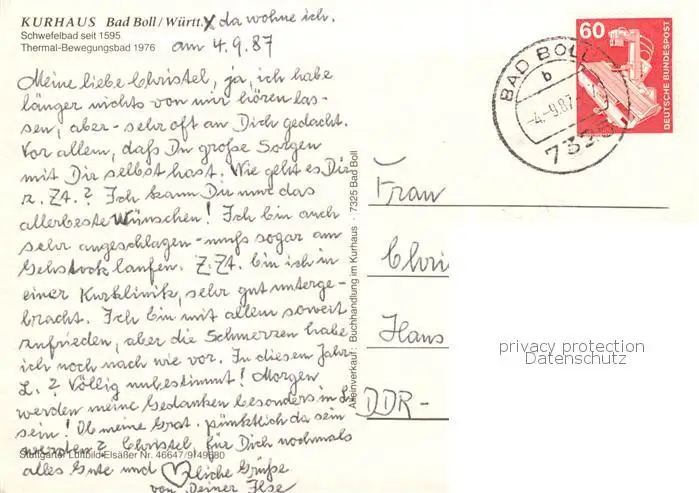 KURHAUS Bad Boll / Württ. X da wohne ich.
Schwefelbad seit 1595
Thermal-Bewegungsbad 1976
am 4.9.87
Meine liebe Christel, ja, ich habe
länger nichts von mir hören las-
sen, aber - sehr oft an Dich gedacht.
Vor allem, daß Du große Sorgen
mit Dir selbst hast. Wie geht es Dir
z. Zt.? Ich kann Dir nur das
allerbeste Wünschen! Ich bin auch
sehr angeschlagen - muß sogar am
Gehstock laufen. Z. Zt. bin ich in
einer Kurklinik, sehr gut unterge-
bracht. Ich bin mit allem soweit
zufrieden, aber die Schmerzen habe
ich noch nach wie vor. In diesem Jahr
L.? Völlig unbestimmt! Morgen
werden meine Gedanken besonders in
sein! Ob meine Grat. pünktlich da sein
werden? Christel, für Dich nochmals
alles Gute und liche Grüße
von Deiner Ilse
Stuttgarter Luftbild Elsäßer Nr. 46647/9/49680
Alleinverkauf: Buchhandlung im Kurhaus · 7325 Bad Boll
60
DEUTSCHE BUNDESPOST
BAD BOLL
b
-4.-9.87
7325
Frau
Chri
Hans
DDR-
privacy protection
Datenschutz